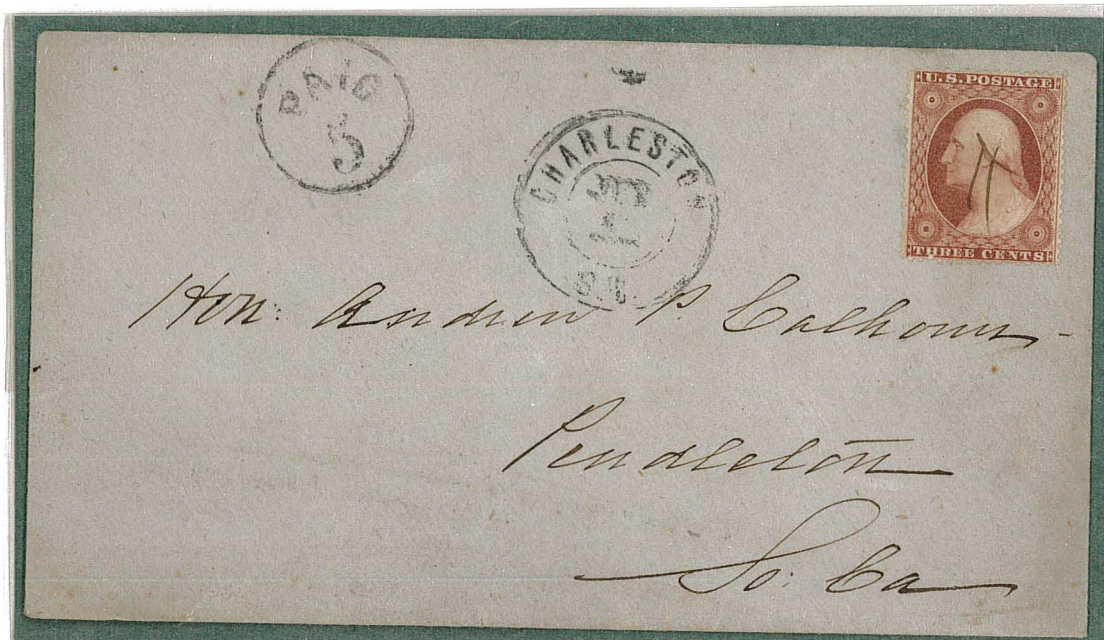 PAID
5
CHARLESTON
S.C.
U.S. POSTAGE
THREE CENTS
Hon. Andrew P. Calhoun
Pendleton
So. Ca